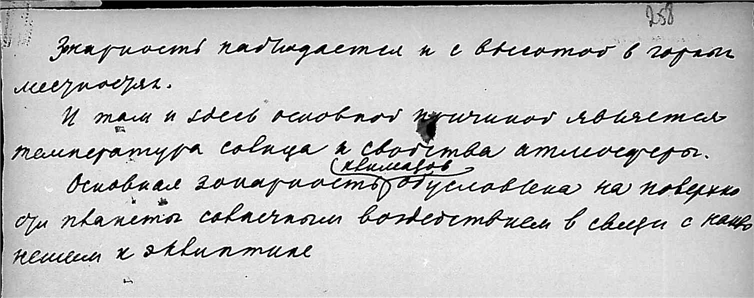 258
Зонарность наблюдается и с высотой в горных
местностях.
И там и здесь основной причиной является
температура солнца и свойства атмосферы.
климатов
Основная зонарность обусловлена на поверхно
сти планеты солнечным воздействием в связи с накло
нением к эклиптике